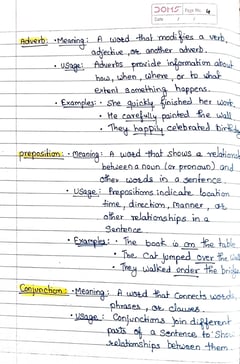 DOMS Page No. 4
Date / /
Adverb: • Meaning: A word that modifies a verb,
adjective, or another adverb.
• Usage: Adverbs provide information about
how, when, where, or to what
extent something happens.
• Examples: • She quickly finished her work.
• He carefully painted the wall
• They happily celebrated
preposition: • Meaning: A word that shows a
between a noun (or pronoun) and
other words in a sentence.
• Usage: Prepositions indicate location
time, direction, manner, or
other relationships in a
Sentence
• Examples: • The book is on the table
• The Cat jumped over the
• They walked under the
Conjunction: • Meaning: A word that connects words,
phrases, or clauses.
• Usage: Conjunctions join different
parts of a Sentence to Show
relationships between them.